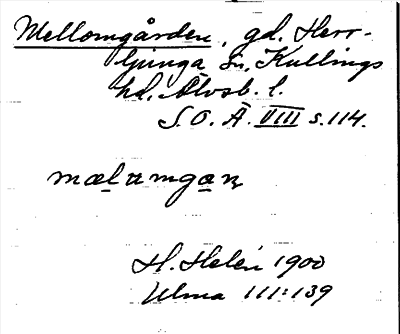 Mellomgården, gd. Herr-
ljunga sn. Kullings
hd. Älvsb. l.
S. O. Ä. VIII s. 114.
H. Helén 1900
Ulma 111:139